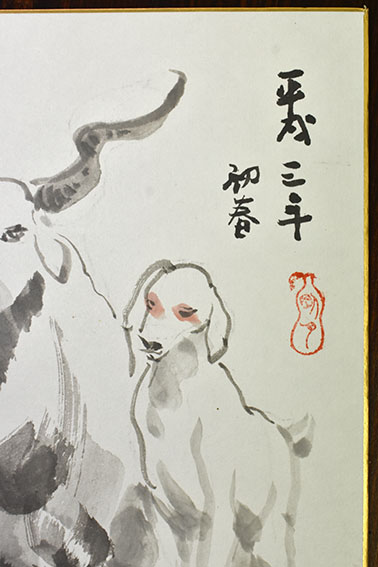 平成三年
初春